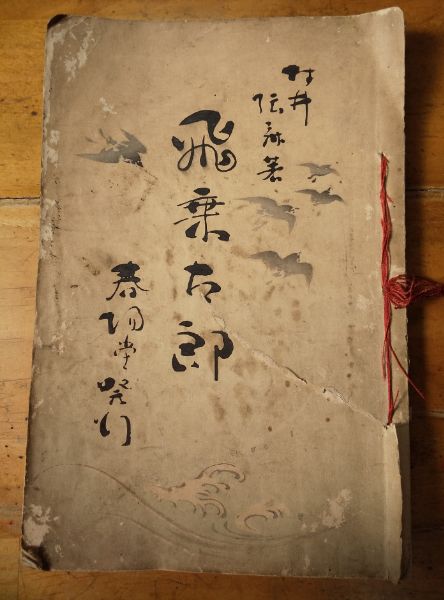 村井
弦斎著
飛乗太郎
春陽堂発行